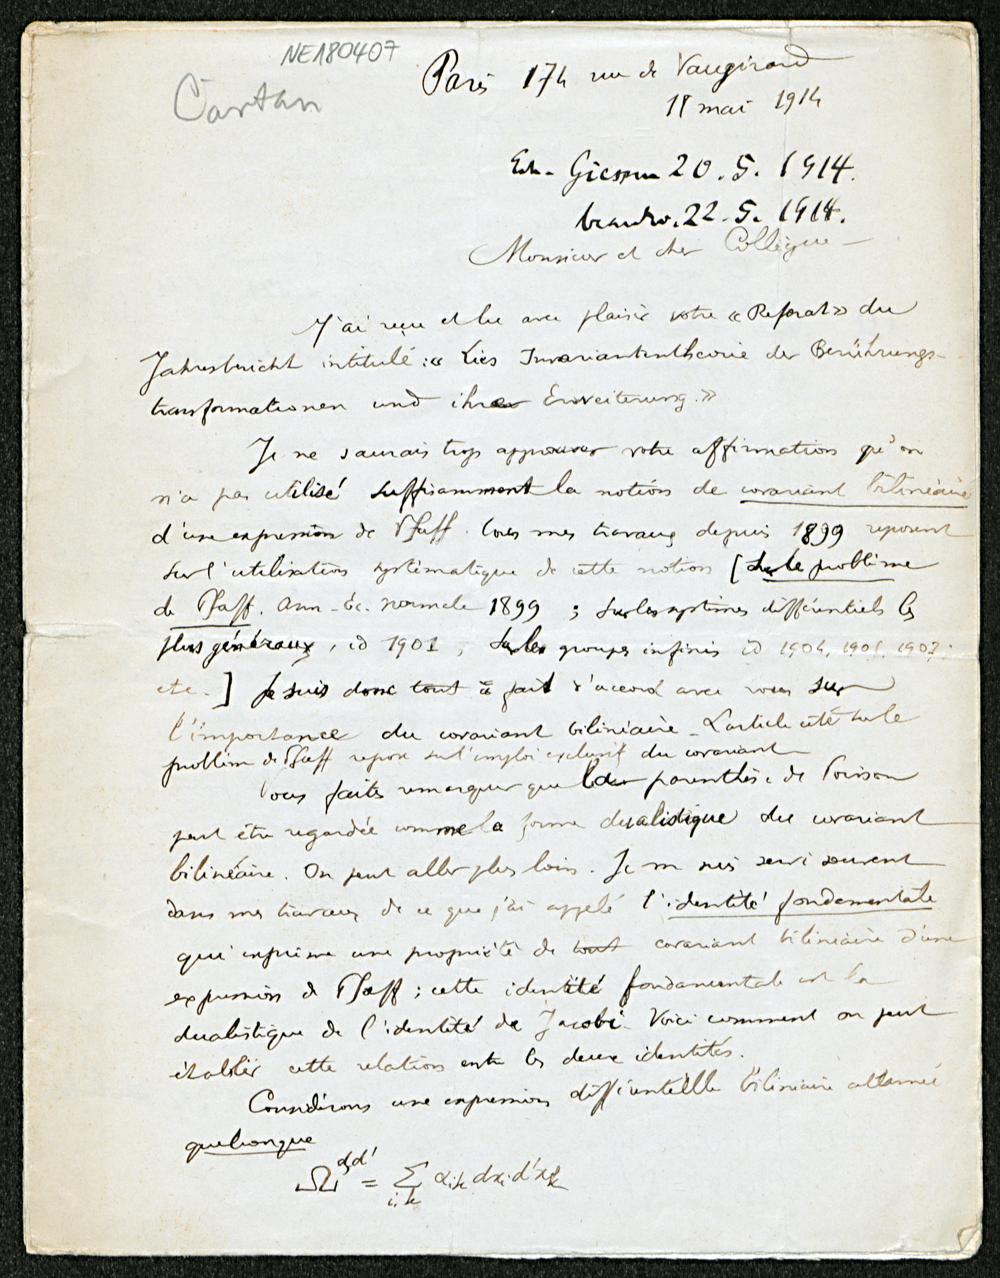 NE180407
Cartan
Paris 174 rue de Vaugirard
18 mai 1914
Giessen 20.5.1914.
22.5.1914.
Monsieur et cher Collègue
J'ai reçu et lu avec plaisir votre « Referat » du
Jahresbericht intitulé : « Lies Invariantentheorie der Berührungs-
transformationen und ihre Erweiterung. »
Je ne saurais trop approuver votre affirmation qu'on
n'a pas utilisé suffisamment la notion de covariant bilinéaire
d'une expression de Pfaff. Tous mes travaux depuis 1899 reposent
sur l'utilisation systématique de cette notion [Sur le problème
de Pfaff. Ann. Ec. normale 1899 ; Sur les systèmes différentiels les
plus généraux, id 1901 ; Sur les groupes infinis id 1904, 1905, 1907.
etc.] Je suis donc tout à fait d'accord avec vous sur
l'importance du covariant bilinéaire. L'article cité sur le
problème de Pfaff repose sur l'emploi exclusif du covariant
Vous faites remarquer que la parenthèse de Poisson
peut être regardée comme la forme dualistique du covariant
bilinéaire. On peut aller plus loin. Je me suis servi souvent
dans mes travaux de ce que j'ai appelé l'identité fondamentale
qui exprime une propriété de tout covariant bilinéaire d'une
expression de Pfaff ; cette identité fondamentale est la
dualistique de l'identité de Jacobi. Voici comment on peut
établir cette relation entre les deux identités.
Considérons une expression différentielle bilinéaire alternée
quelconque
Ω^{d,d'} = ∑_{i,k} α_{ik} dx_i d'x_k